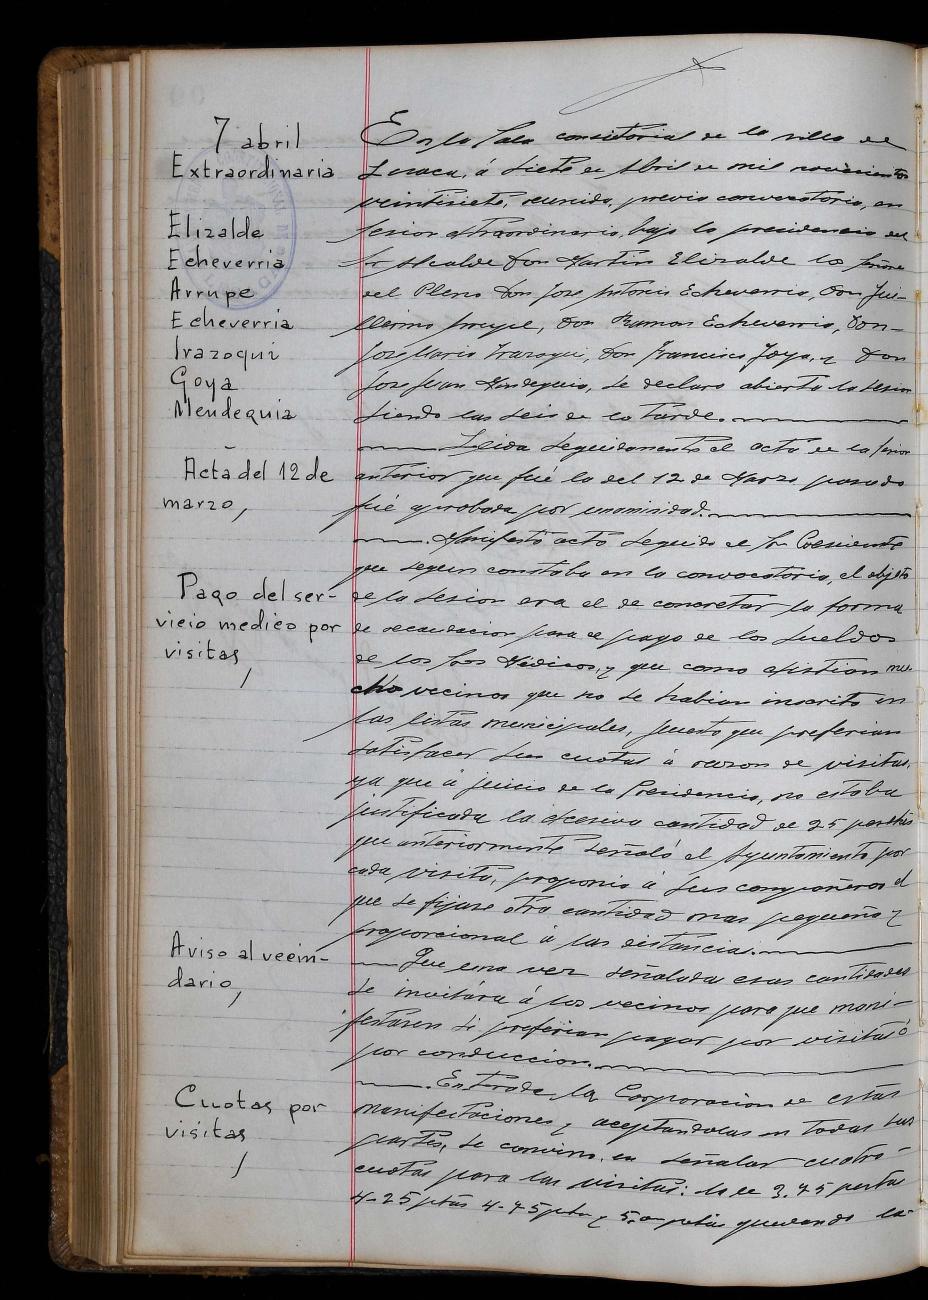 7 abril
Extraordinaria
Elizalde
Echeverria
Arrupe
Echeverria
Irazoqui
Goya
Mendeguia
Acta del 12 de
marzo,
Pago del ser-
vicio medico por
visitas,
Aviso al vecin-
dario,
Cuotas por
visitas,
En la Sala consistorial de la villa de
Lesaca, á siete de Abril de mil novecientos
veintisiete, reunido, previa convocatoria, en
sesion extraordinaria, bajo la presidencia del
Sr Alcalde Don Martin Elizalde los señores
del Pleno Don Jose Antonio Echeverria, Don Gui-
llermo Arrupe, Don Ramon Echeverria, Don-
Jose Maria Irazoqui, Don Francisco Goya, y Don
Jose Juan Mendeguia, se declaro abierta la sesion
siendo las seis de la tarde.
Leida seguidamente el acta de la sesion
anterior que fué la del 12 de Marzo pasado
fué aprobada por unanimidad.
Manifestó acto seguido el Sr Presidente
que segun constaba en la convocatoria, el objeto
de la sesion era el de concretar la forma
de recaudacion para el pago de los sueldos
de los Sres Médicos, y que como existian mu-
cho vecinos que no se habian inscrito en
las listas municipales, puesto que preferian
satisfacer sus cuotas á razon de visitas,
ya que á juicio de la Presidencia, no estaba
justificada la excesiva cantidad de 25 pesetas
que anteriormente señaló el Ayuntamiento por
cada visita, proponia á sus compañeros el
que se fijase otra cantidad mas pequeña y
proporcional á las distancias.
Que una vez señaladas esas cantidades
se invitára á los vecinos para que mani-
festasen si preferian pagar por visitas ó
por conduccion.
Enterada la Corporacion de estas
manifestaciones y aceptandolas en todas sus
partes, se convino en señalar cuatro-
cuotas para las visitas: la de 3,75 pesetas
4-25 ptas 4-75 ptas y 5,0 ptas quedando la-